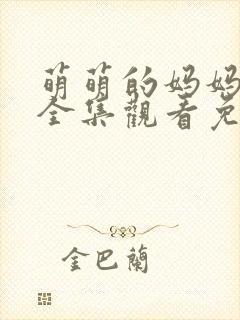 萌萌的妈妈
全集觀看免
金巴蘭